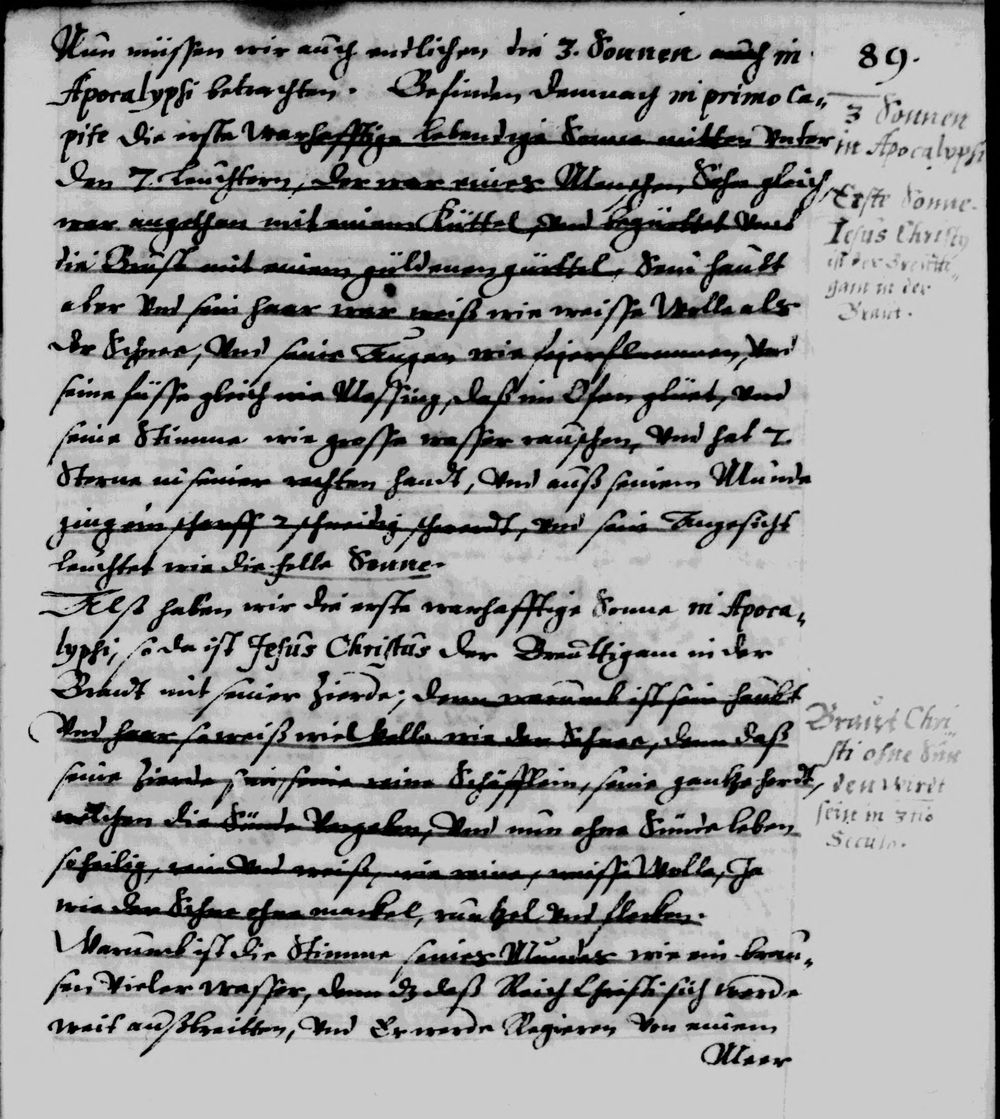 Nun müssen wir auch endlichen die 3. Sonnen auch in
Apocalypsi betrachten. Befinden demnach in primo Ca-
pite die erste warhafftige lebendige Sonne mitten unter
den 7. leuchtern, der war eines Menschen Sohn gleich,
war angethan mit einem Küttel, und begürttet umb
die Brust mit einem güldenen gürttel, Sein haubt
aber und sein haar war weiß wie weisse Wolle als
der Schnee, und seine Augen wie feierflammen, und
seine füsse gleich wie Messing, daß im Ofen glüet, und
seine Stimme wie grosse wasser rauschen, und hat 7.
Sterne in seiner rechten handt, und auß seinem Munde
ging ein scharff 2 schneidig schwerdt, und sein Angesicht
leuchtet wie die helle Sonne.
Alß haben wir die erste warhafftige Sonne in Apoca-
lypsi, so da ist Jesus Christus der Breuttigam in der
Braut mit seiner Zierde; denn warumb ist sein haubt
und haar so weiß wie Wolle wie der Schnee, denn daß
seine Zierde sein seine reine Schäfflein, seine gantze herdt,
welchen die Sünde vergeben, und nun ohne Sünde leben
so heilig, rein und weiß, wie reine, weisse Wolle, Ja
wie der Schne ohne mackel, runtzel und flecken.
Warumb ist die Stimme seines Mundes wie ein brau-
sen vieler wasser, denn dz daß Reich Christi sich werde
weit außbreitten, und Er werde Regieren von einem
Meer
89.
3 Sonnen
in Apocalypsi
Erste Sonne.
Jesus Christus
ist der Breutti-
gam in der
Braut.
Braut Chri-
sti ohne Sün
den wirdt
sein in 3tio
Seculo.